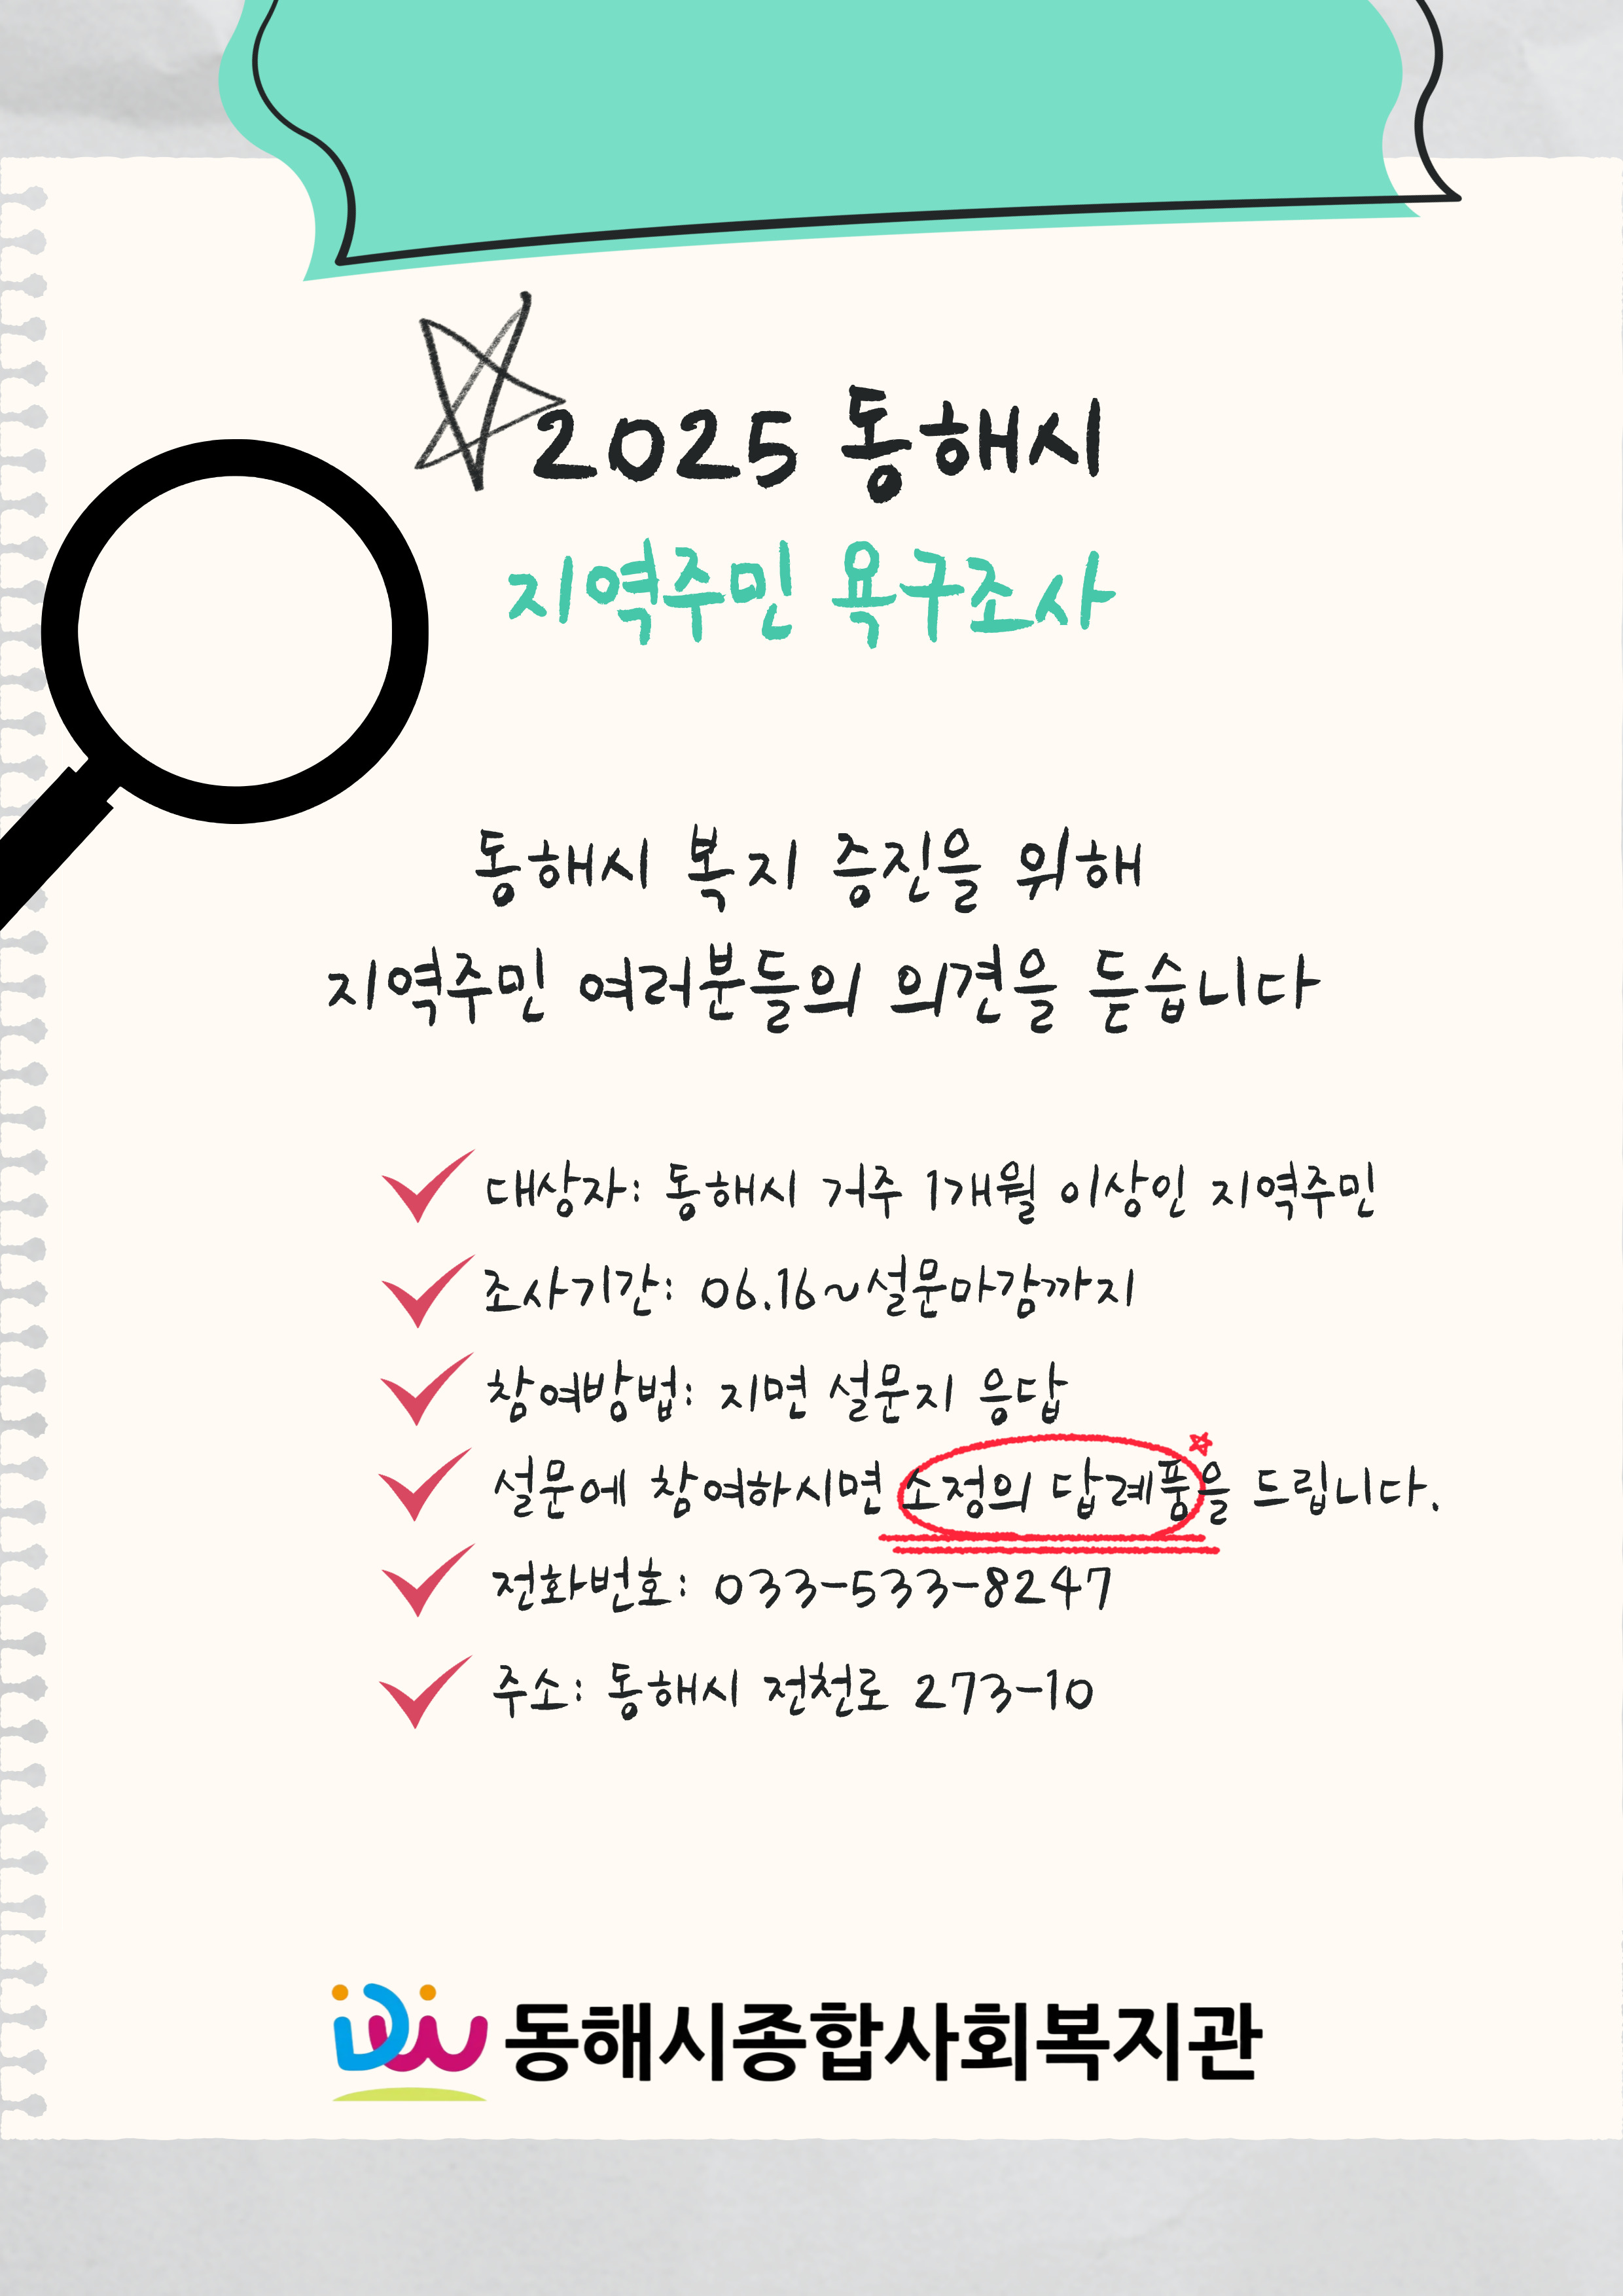 2025 동해시
지역주민 욕구조사
동해시 복지 증진을 위해
지역주민 여러분들의 의견을 듣습니다
대상자: 동해시 거주 1개월 이상인 지역주민
조사기간: 06.16~설문마감까지
참여방법: 지면 설문지 응답
설문에 참여하시면 소정의 답례품을 드립니다.
전화번호: 033-533-8247
주소: 동해시 전천로 273-10
동해시종합사회복지관